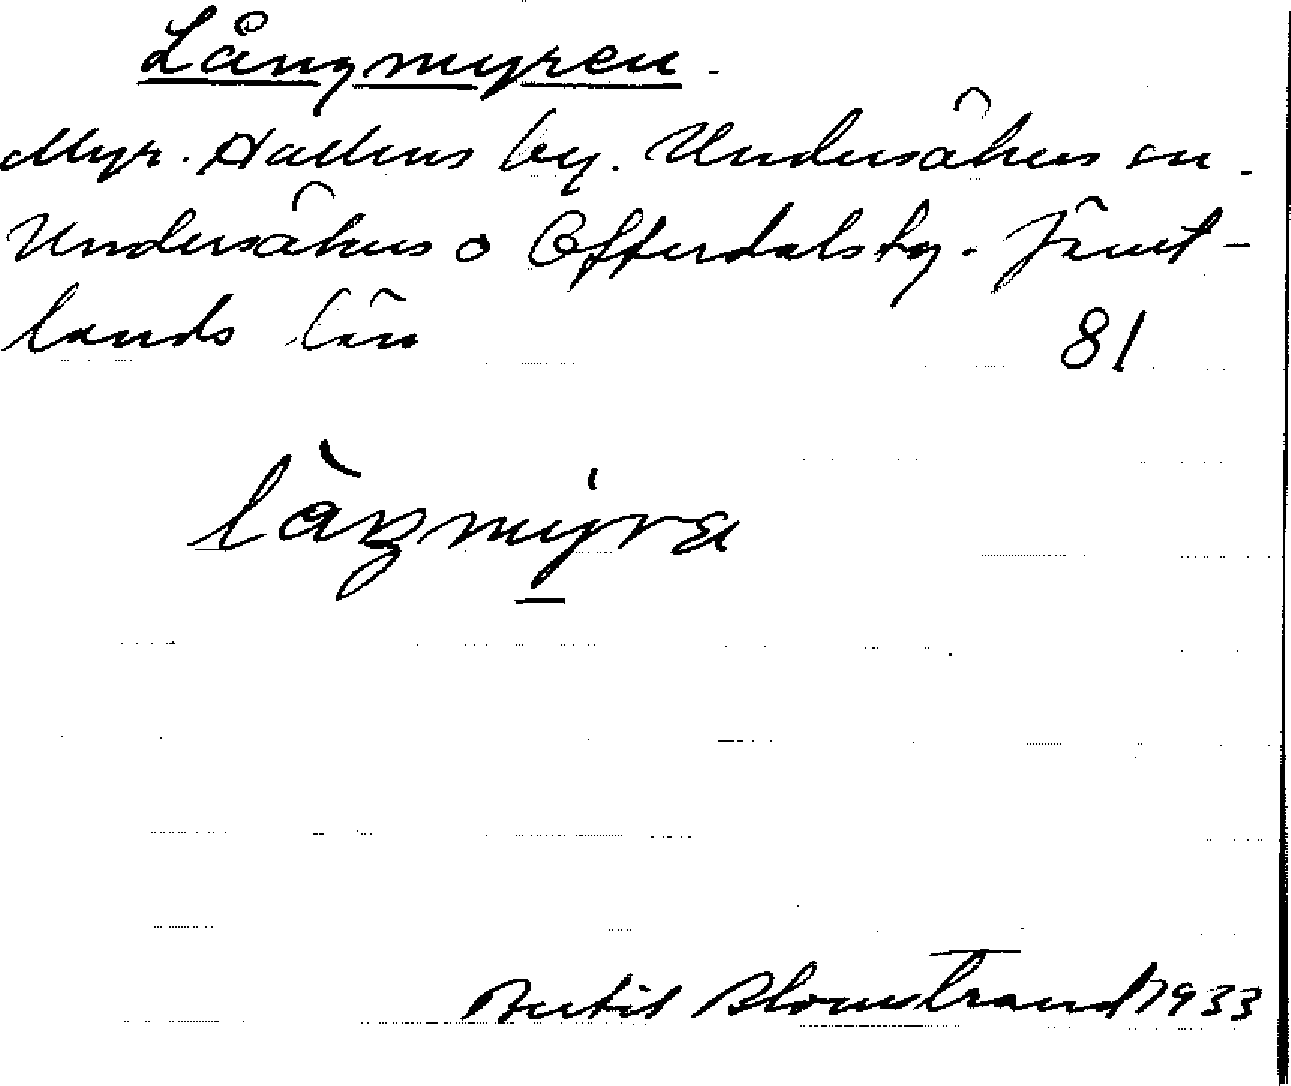 Långmyren.
Myr. Hallens by. Undersåkers sn.
Undersåkers o Offerdals tg. Jämt-
lands län
81
làŋmýra
Bertil Blomstrand 1933